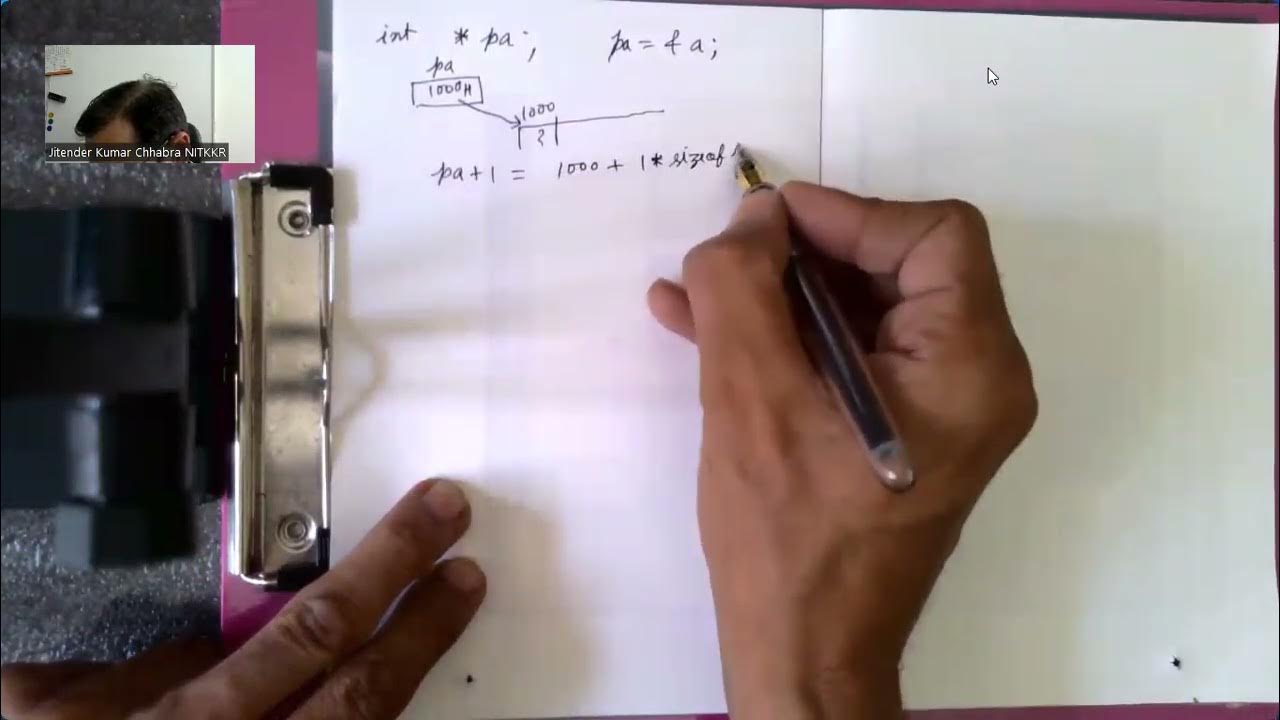 int * pa; pa = & a;
pa
1000H
1000
2
pa+1 = 1000 + 1 * sizeof
Jitender Kumar Chhabra NITKKR